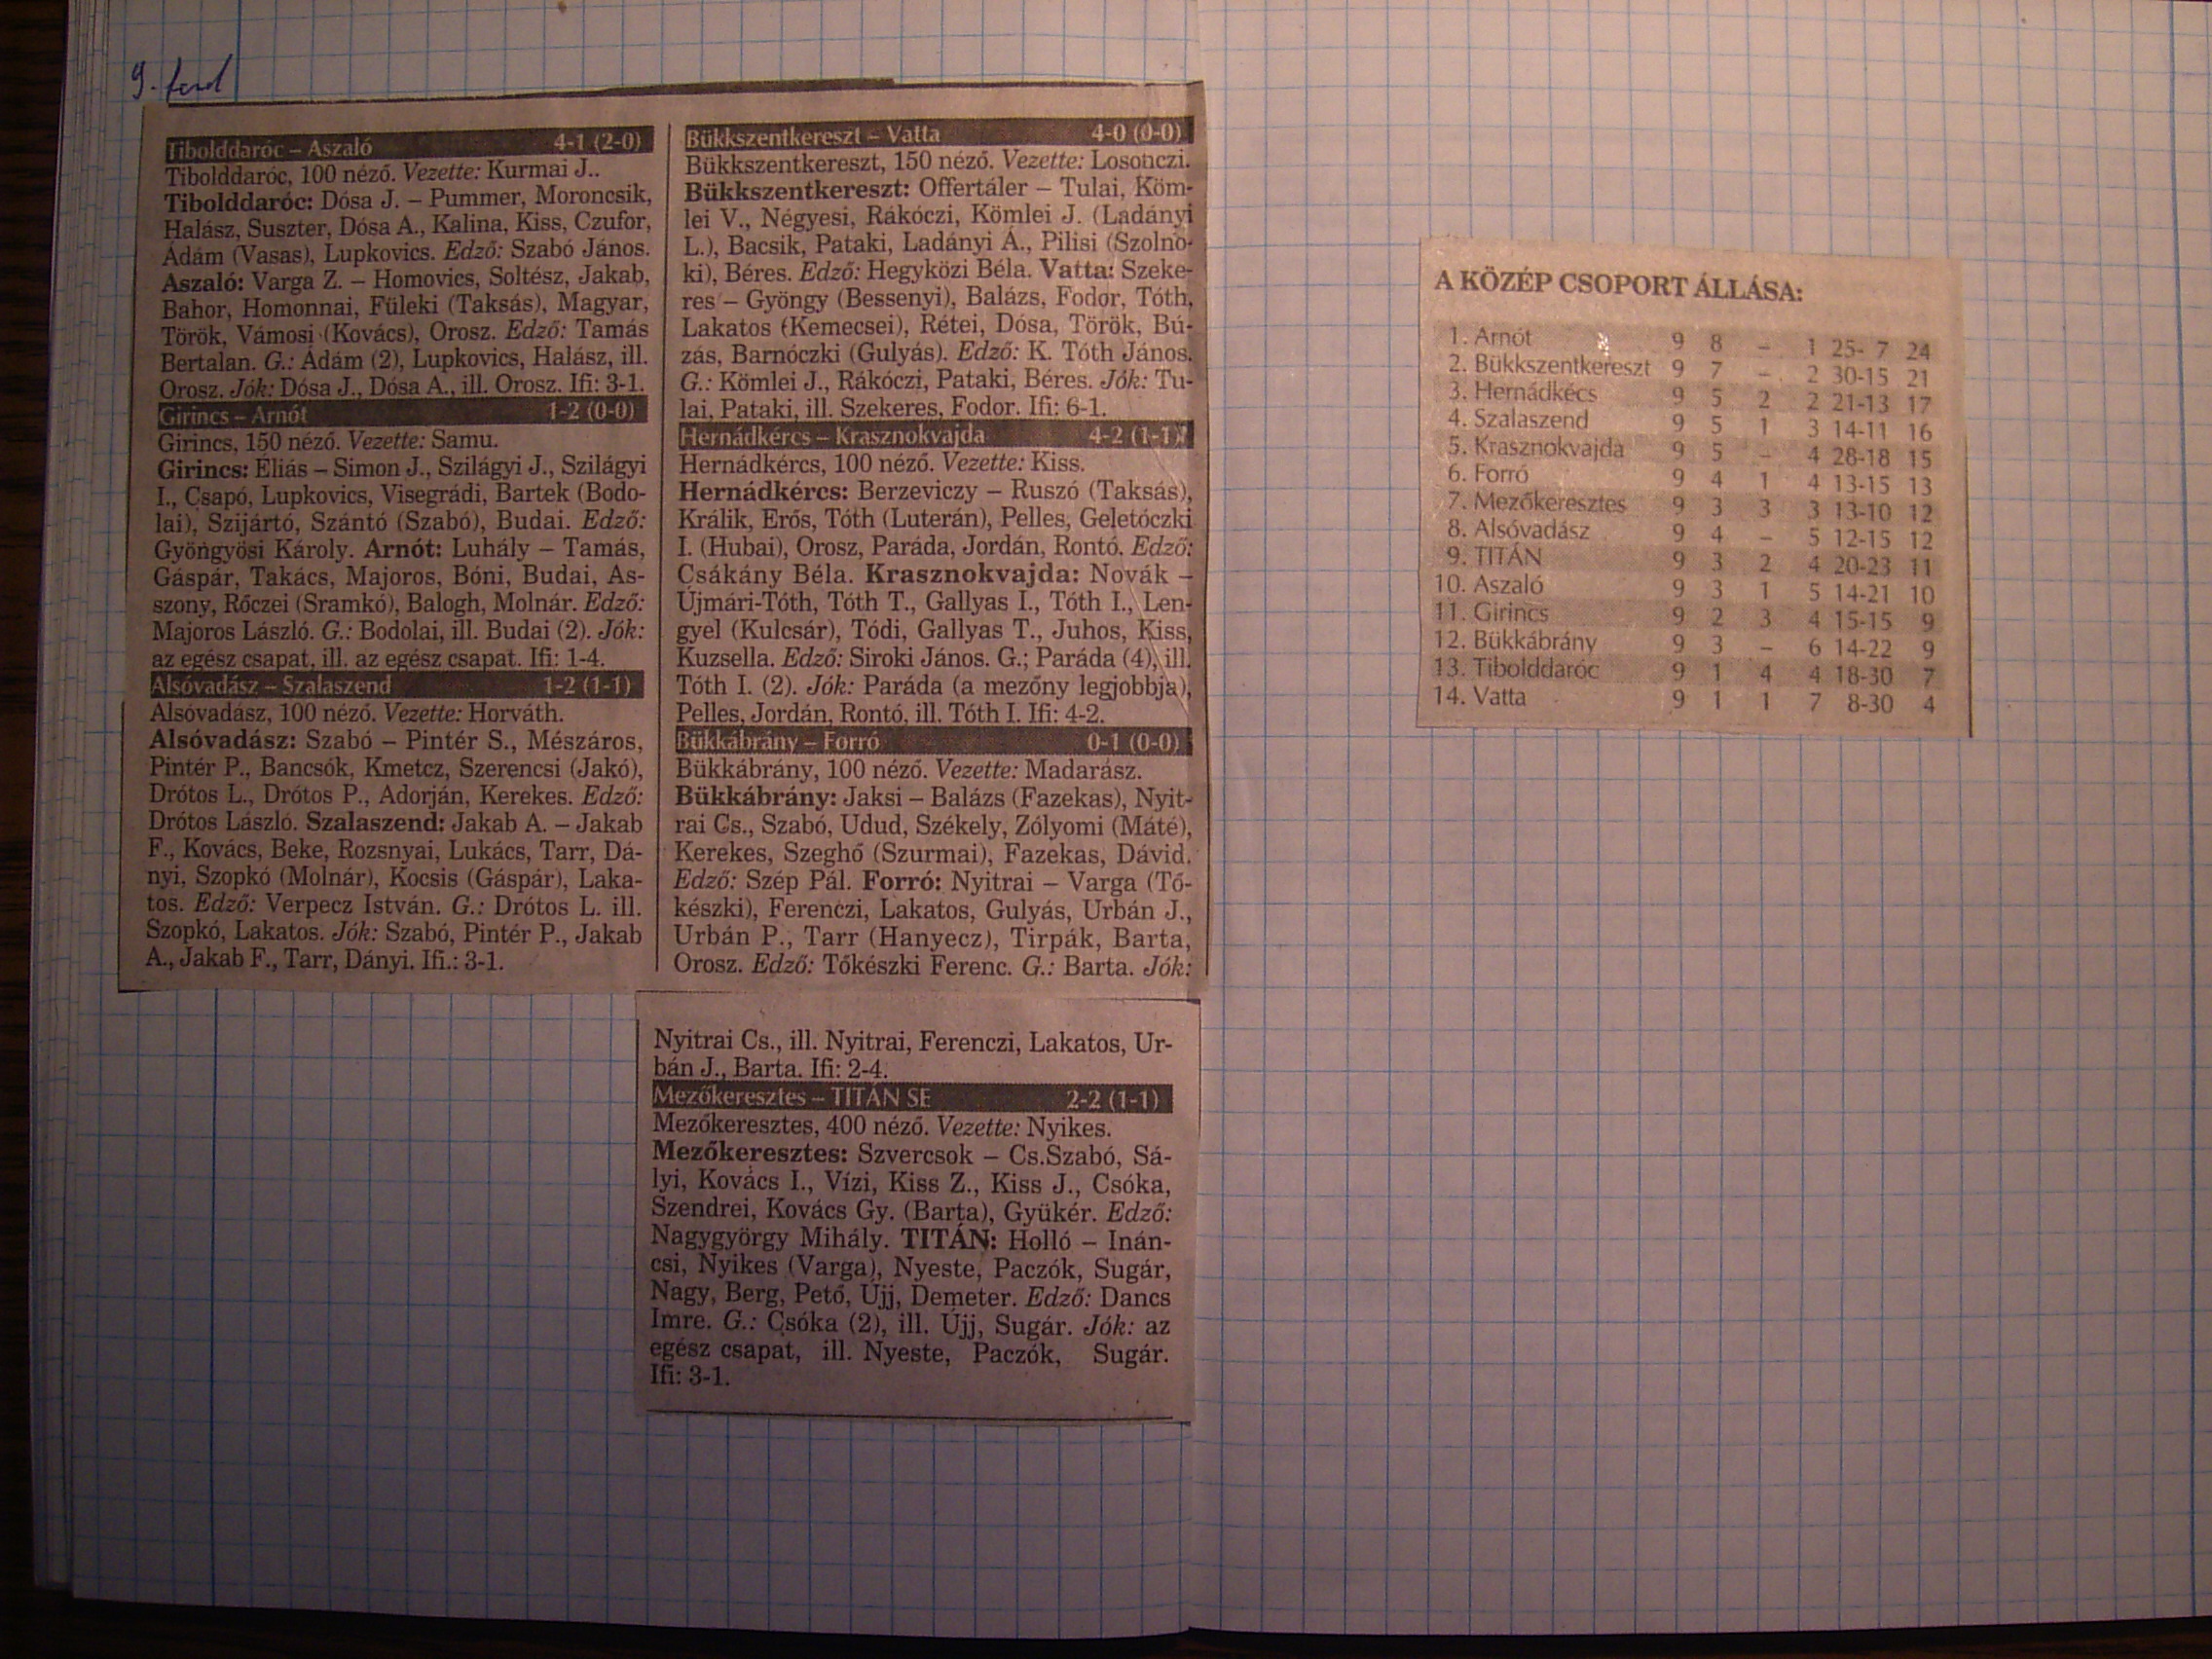 9. ford
Tibolddaróc – Aszaló 4-1 (2-0)
Tibolddaróc, 100 néző. Vezette: Kurmai J..
Tibolddaróc: Dósa J. – Pummer, Moroncsik,
Halász, Suszter, Dósa A., Kalina, Kiss, Czufor,
Ádám (Vasas), Lupkovics. Edző: Szabó János.
Aszaló: Varga Z. – Homovics, Soltész, Jakab,
Bahor, Homonnai, Füleki (Taksás), Magyar,
Török, Vámosi (Kovács), Orosz. Edző: Tamás
Bertalan. G.: Ádám (2), Lupkovics, Halász, ill.
Orosz. Jók: Dósa J., Dósa A., ill. Orosz. Ifi: 3-1.
Girincs – Arnót 1-2 (0-0)
Girincs, 150 néző. Vezette: Samu.
Girincs: Éliás – Simon J., Szilágyi J., Szilágyi
I., Csapó, Lupkovics, Visegrádi, Bartek (Bodo-
lai), Szijártó, Szántó (Szabó), Budai. Edző:
Gyöngyösi Károly. Arnót: Luhály – Tamás,
Gáspár, Takács, Majoros, Bóni, Budai, As-
szony, Rőczei (Sramkó), Balogh, Molnár. Edző:
Majoros László. G.: Bodolai, ill. Budai (2). Jók:
az egész csapat, ill. az egész csapat. Ifi: 1-4.
Alsóvadász – Szalaszend 1-2 (1-1)
Alsóvadász, 100 néző. Vezette: Horváth.
Alsóvadász: Szabó – Pintér S., Mészáros,
Pintér P., Bancsók, Kmetcz, Szerencsi (Jakó),
Drótos L., Drótos P., Adorján, Kerekes. Edző:
Drótos László. Szalaszend: Jakab A. – Jakab
F., Kovács, Beke, Rozsnyai, Lukács, Tarr, Dá-
nyi, Szopkó (Molnár), Kocsis (Gáspár), Laka-
tos. Edző: Verpecz István. G.: Drótos L. ill.
Szopkó, Lakatos. Jók: Szabó, Pintér P., Jakab
A., Jakab F., Tarr, Dányi. Ifi.: 3-1.
Bükkszentkereszt – Vatta 4-0 (0-0)
Bükkszentkereszt, 150 néző. Vezette: Losonczi.
Bükkszentkereszt: Offertáler – Tulai, Köm-
lei V., Négyesi, Rákóczi, Kömlei J. (Ladányi
L.), Bacsik, Pataki, Ladányi Á., Pilisi (Szolno-
ki), Béres. Edző: Hegyközi Béla. Vatta: Szeke-
res – Gyöngy (Bessenyi), Balázs, Fodor, Tóth,
Lakatos (Kemecsei), Rétei, Dósa, Török, Bú-
zás, Barnóczki (Gulyás). Edző: K. Tóth János.
G.: Kömlei J., Rákóczi, Pataki, Béres. Jók: Tu-
lai, Pataki, ill. Szekeres, Fodor. Ifi: 6-1.
Hernádkércs – Krasznokvajda 4-2 (1-1)
Hernádkércs, 100 néző. Vezette: Kiss.
Hernádkércs: Berzeviczy – Ruszó (Taksás),
Králik, Erős, Tóth (Luterán), Pelles, Geletóczki
I. (Hubai), Orosz, Paráda, Jordán, Rontó. Edző:
Csákány Béla. Krasznokvajda: Novák –
Újmári-Tóth, Tóth T., Gallyas I., Tóth I., Len-
gyel (Kulcsár), Tódi, Gallyas T., Juhos, Kiss,
Kuzsella. Edző: Siroki János. G.; Paráda (4), ill.
Tóth I. (2). Jók: Paráda (a mezőny legjobbja),
Pelles, Jordán, Rontó, ill. Tóth I. Ifi: 4-2.
Bükkábrány – Forró 0-1 (0-0)
Bükkábrány, 100 néző. Vezette: Madarász.
Bükkábrány: Jaksi – Balázs (Fazekas), Nyit-
rai Cs., Szabó, Udud, Székely, Zólyomi (Máté),
Kerekes, Szeghő (Szurmai), Fazekas, Dávid.
Edző: Szép Pál. Forró: Nyitrai – Varga (Tő-
készki), Ferenczi, Lakatos, Gulyás, Urbán J.,
Urbán P., Tarr (Hanyecz), Tirpák, Barta,
Orosz. Edző: Tőkészki Ferenc. G.: Barta. Jók:
Nyitrai Cs., ill. Nyitrai, Ferenczi, Lakatos, Ur-
bán J., Barta. Ifi: 2-4.
Mezőkeresztes – TITÁN SE 2-2 (1-1)
Mezőkeresztes, 400 néző. Vezette: Nyikes.
Mezőkeresztes: Szvercsok – Cs.Szabó, Sá-
lyi, Kovács I., Vízi, Kiss Z., Kiss J., Csóka,
Szendrei, Kovács Gy. (Barta), Gyükér. Edző:
Nagygyörgy Mihály. TITÁN: Holló – Inán-
csi, Nyikes (Varga), Nyeste, Paczók, Sugár,
Nagy, Berg, Pető, Újj, Demeter. Edző: Dancs
Imre. G.: Csóka (2), ill. Újj, Sugár. Jók: az
egész csapat, ill. Nyeste, Paczók, Sugár.
Ifi: 3-1.
A KÖZÉP CSOPORT ÁLLÁSA:
1. Arnót 9 8 – 1 25- 7 24
2. Bükkszentkereszt 9 7 – 2 30-15 21
3. Hernádkécs 9 5 2 2 21-13 17
4. Szalaszend 9 5 1 3 14-11 16
5. Krasznokvajda 9 5 – 4 28-18 15
6. Forró 9 4 1 4 13-15 13
7. Mezőkeresztes 9 3 3 3 13-10 12
8. Alsóvadász 9 4 – 5 12-15 12
9. TITÁN 9 3 2 4 20-23 11
10. Aszaló 9 3 1 5 14-21 10
11. Girincs 9 2 3 4 15-15 9
12. Bükkábrány 9 3 – 6 14-22 9
13. Tibolddaróc 9 1 4 4 18-30 7
14. Vatta 9 1 1 7 8-30 4